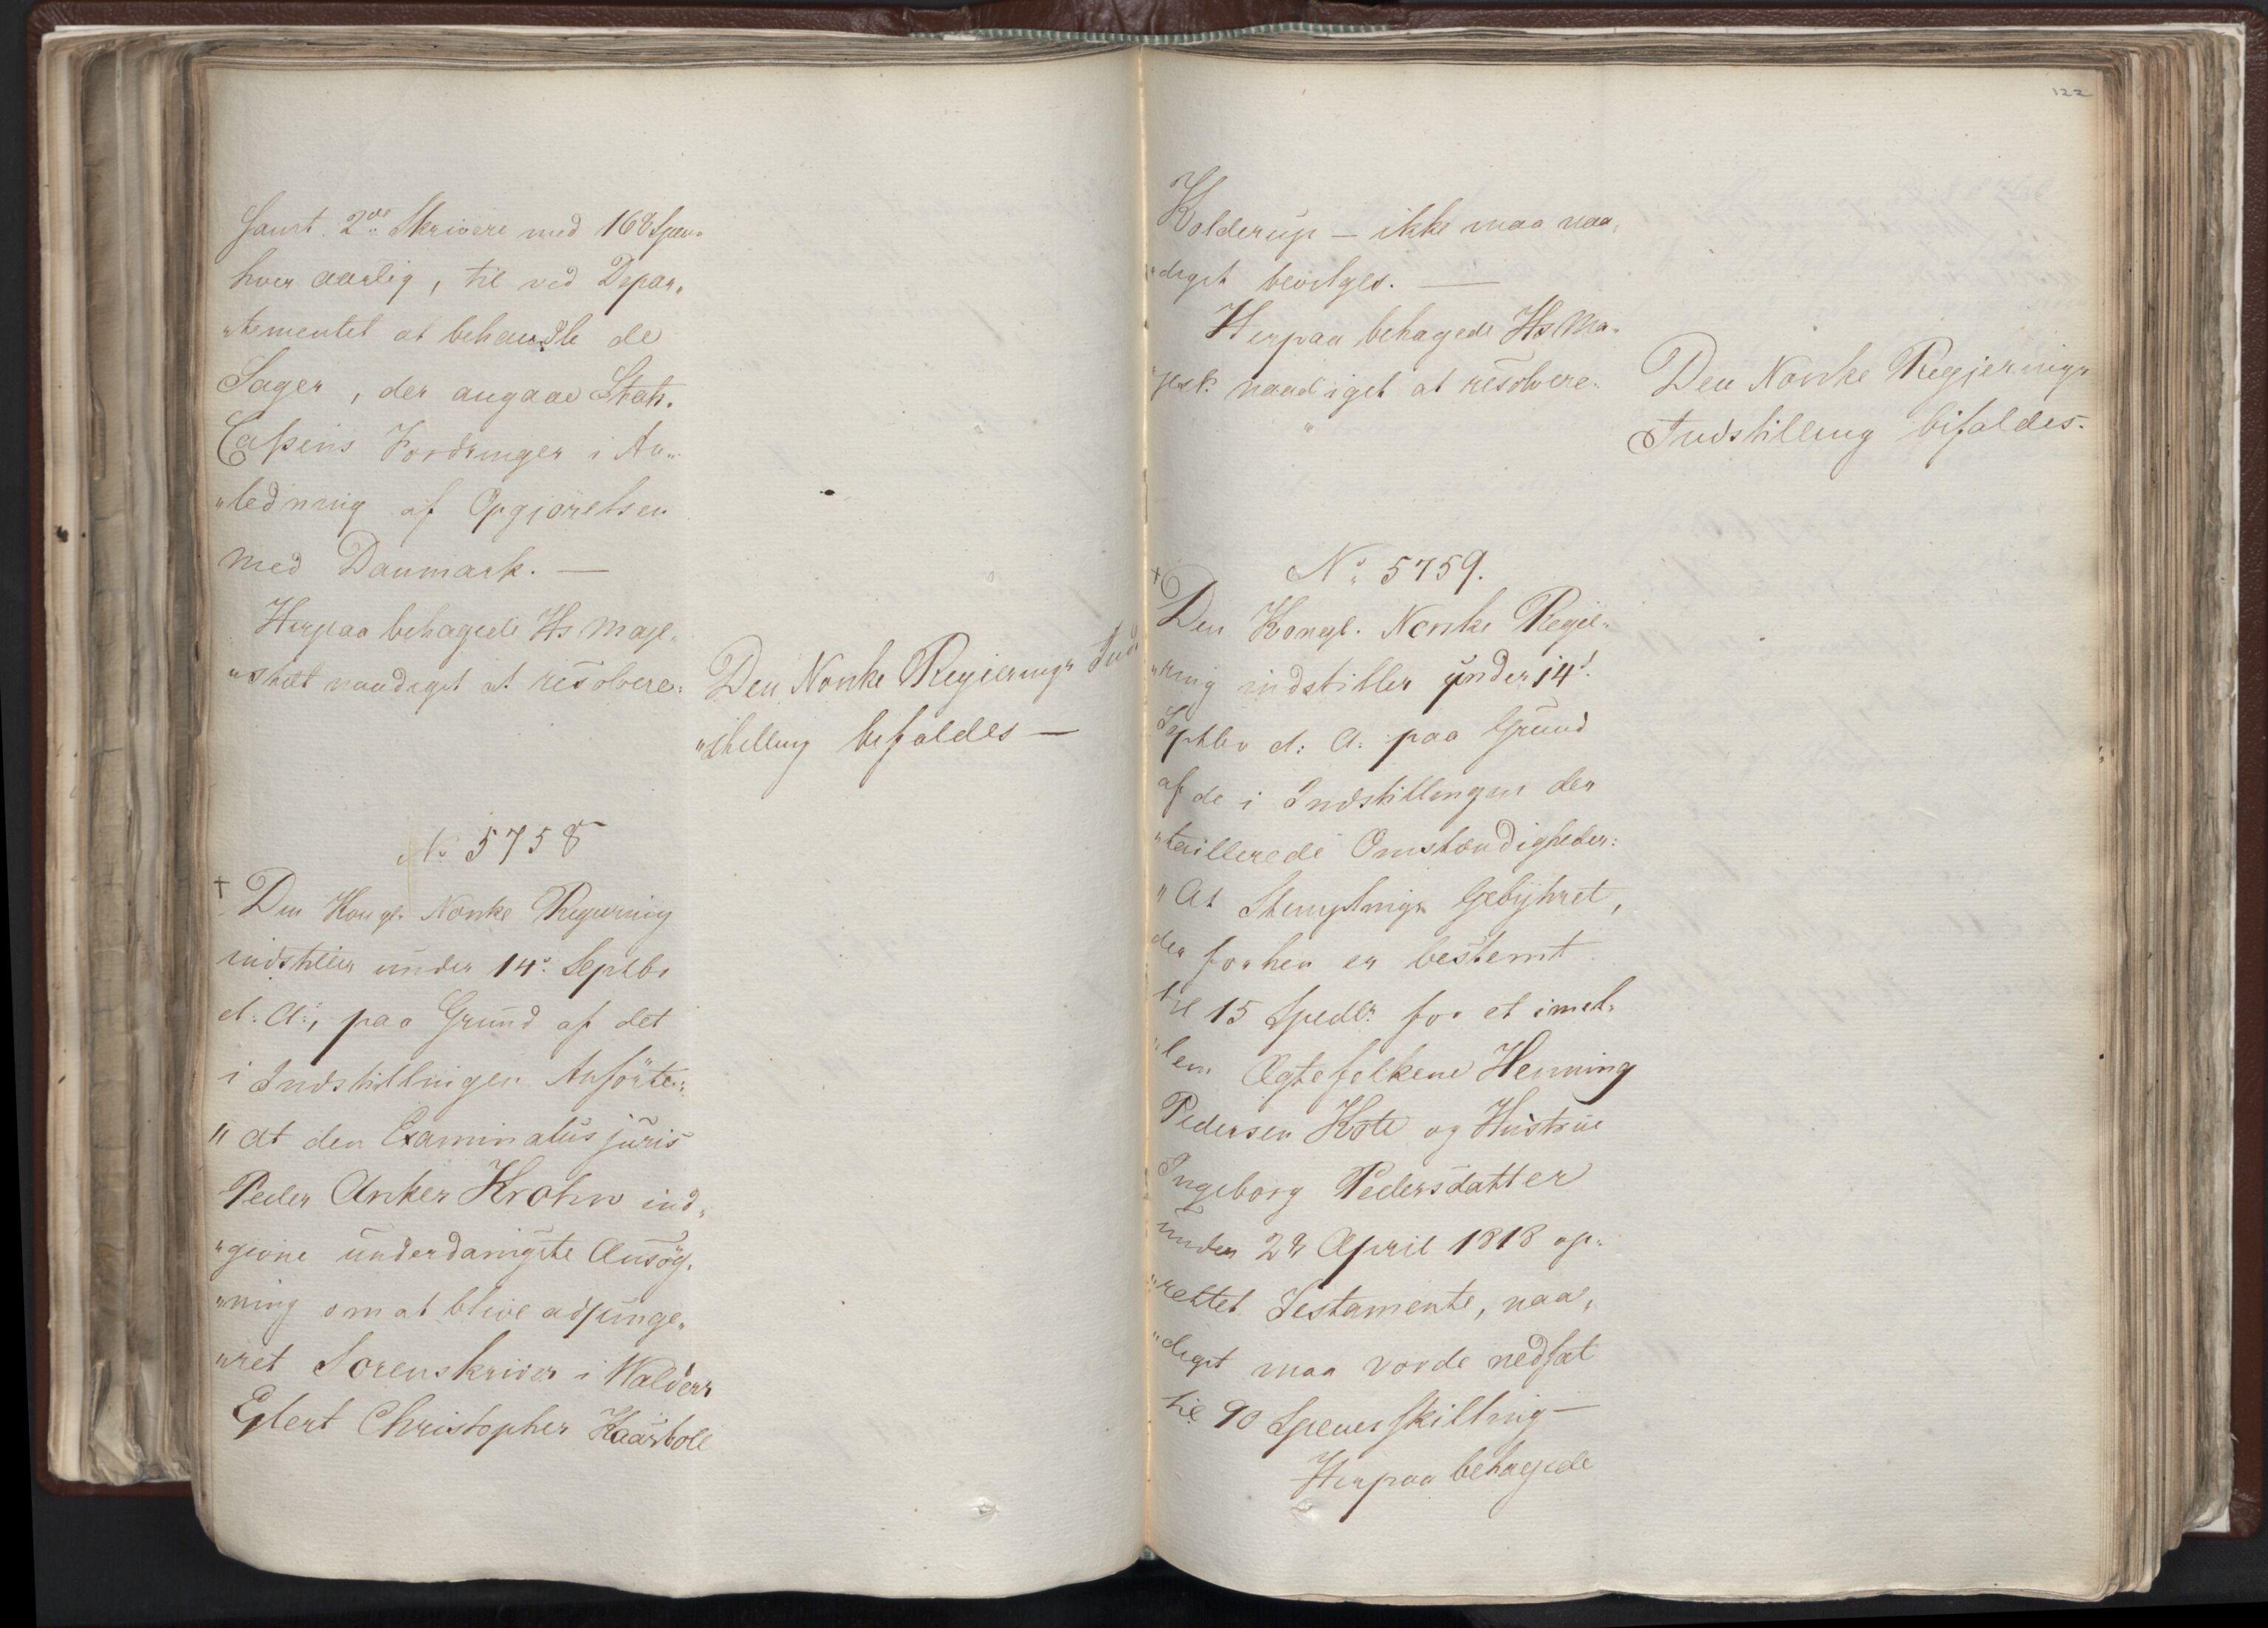 samt 2de Skrivere med 168 Spec.
hver aarlig, til ved Depar„
„tementet at behandle de
Sager, der angaae Stats„
Cassens Fordringer i An„
„ledning af Opgjørelsen
med Danmark. —
Herpaa behagede Hs Maje„
„stæt naadigst at resolvere:
Den Norske Regierings Ind„
„stilling bifaldes —
No 5758
+ Den Kongl. Norske Regiering
indstiller under 14de Septbr
d: A:, paa Grund af det
i Indstillingen Anførte:
„At den Examinatus juris
Peder Anker Krohn ind„
„givne underdanigste Ansøg„
„ning om at blive adjunge„
„ret Sorenskriver i Walders
Eylert Christopher Haarboll
122
Kolderup — ikke maa naa„
„digst bevilges. —
Herpaa behagede Hs Ma„
„jest. naadigst at resolvere:
Den Norske Regjerings
Indstilling bifaldes.
No 5759.
+
Den Kongl. Norske Regie„
„ring indstiller under 14d:
Septbr d: A: paa Grund
af de i Indstillingen de„
„taillerede Omstændigheder:
„At Stemplings Gebyhret,
der forhen er bestemt
til 15 Spedlr. for et imel„
„lem Ægtefolkene Henning
Pedersen Kote og Hustrue
Ingeborg Pedersdatter
under 28 April 1818 op„
„rettet Testamente, naa„
„digst maa vorde nedsat
til 90 Speciesskilling —
Herpaa behagede